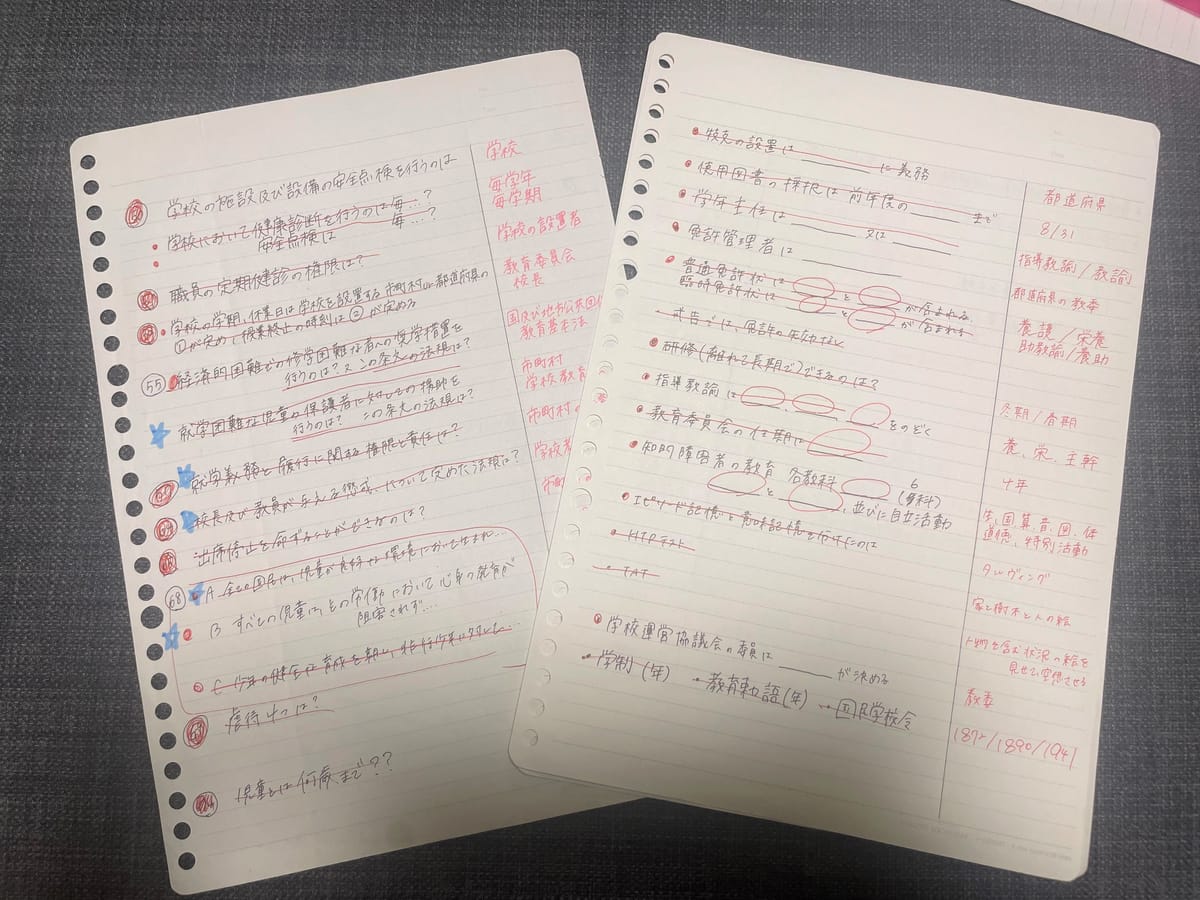 学校の施設及び設備の安全点検を行うのは
学校において健康診断を行うのは毎…?
安全点検は 毎…?
職員の定期健診の権限は?
学校の学期、休業日は学校を設置する市町村or都道府県の
①が定めて授業終止の時刻は②が定める
55 経済的困難での修学困難な者への奨学措置を
行うのは? この条文の法規は?
就学困難な児童の保護者に対しての援助を
行うのは? この条文の法規は?
就学義務と履行に関する権限と責任は?
校長及び教員が与える懲戒について定めた法規は?
出席停止を命ずることができるのは?
68 A 全ての国民は、児童が良好な環境において生まれ…
B すべての児童は、その労働において、心身の発育が
阻害されず…
C 少年の健全な育成を期し、非行少年に対して…
虐待4つは?
児童とは何歳まで??
学校
毎学年
毎学期
学校の設置者
教育委員会
校長
国及び地方公共団体
教育基本法
市町村
学校教育
市町村の
学校教
市町
特支の設置は に義務
使用図書の採択は前年度の まで
学年主任は 又は
免許管理者は
普通免許状は と が含まれる
臨時免許状は と が含まれる
戒告では、免許の失効せん
研修(離れて長期で)できるのは?
指導教諭は をのぞく
教育委員会の任期は
知的障害者の教育 各教科 6
(教科)
と 、並びに自立活動
エピソード記憶と意味記憶を分けたのは
HTPテスト
TAT
学校運営協議会の委員は が決める
学制(年) →教育勅語(年) →国民学校令
都道府県
8/31
指導教諭/教諭
都道府県の教委
養護/栄養
助教諭/養助
冬期/春期
養、栄、主幹
十年
生、国、算、音、図、体
道徳、特別活動
タルヴィング
家と樹木と人の絵
人物を含む状況の絵を
見せて空想させる
教委
1872/1890/1941